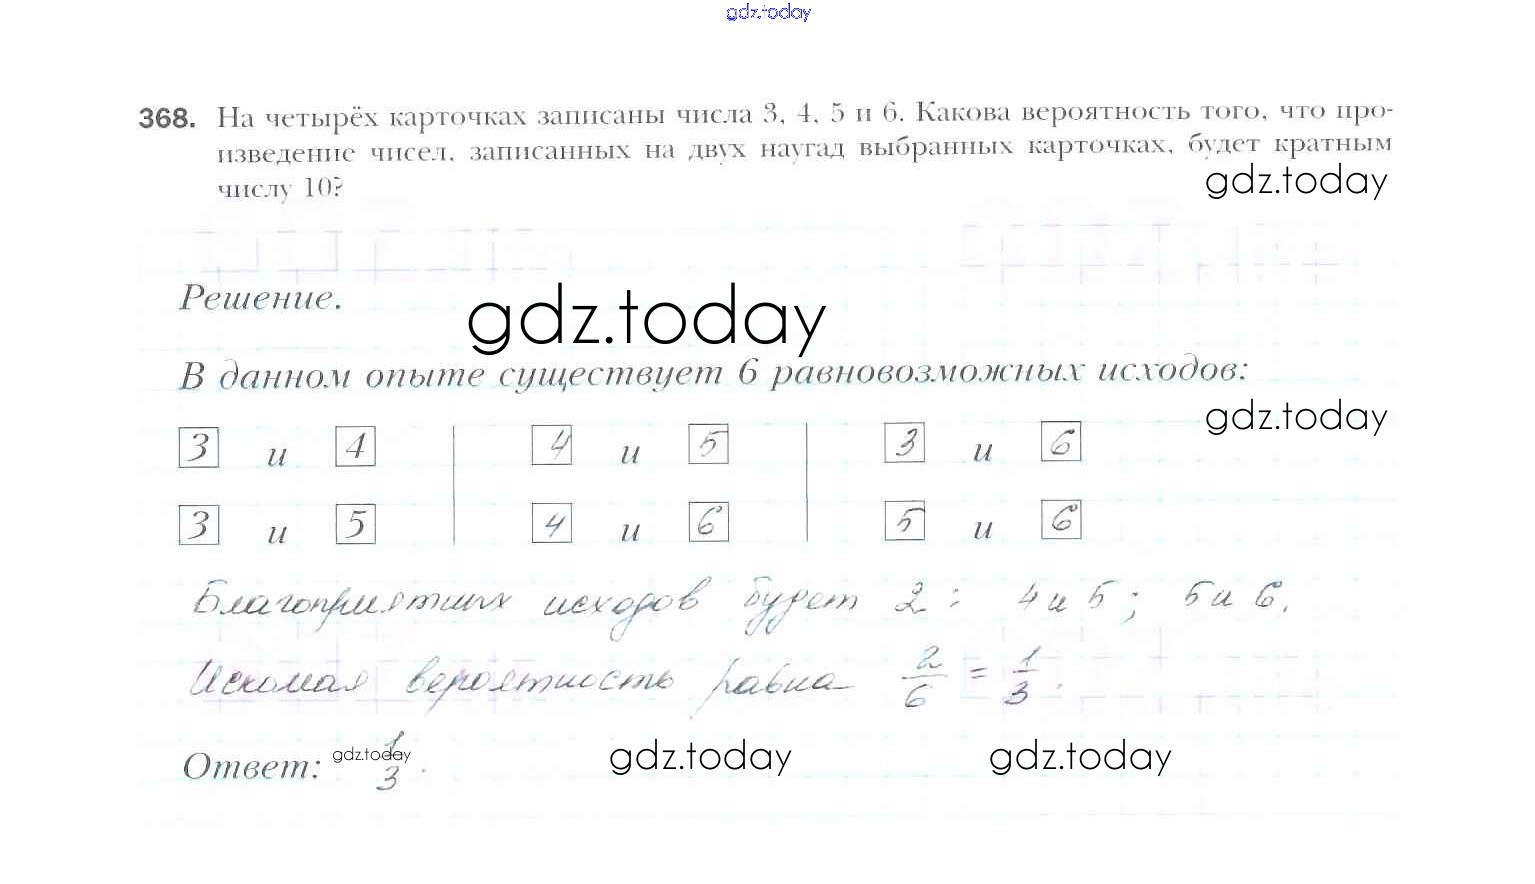 gdz.today
368. На четырёх карточках записаны числа 3, 4, 5 и 6. Какова вероятность того, что про-
изведение чисел, записанных на двух наугад выбранных карточках, будет кратным
числу 10?
gdz.today
Решение.
gdz.today
В данном опыте существует 6 равновозможных исходов:
gdz.today
3 и 4 4 и 5 3 и 6
3 и 5 4 и 6 5 и 6
Благоприятных исходов будет 2: 4 и 5; 5 и 6.
Искомая вероятность равна 2/6 = 1/3.
Ответ: 1/3.
gdz.today
gdz.today
gdz.today